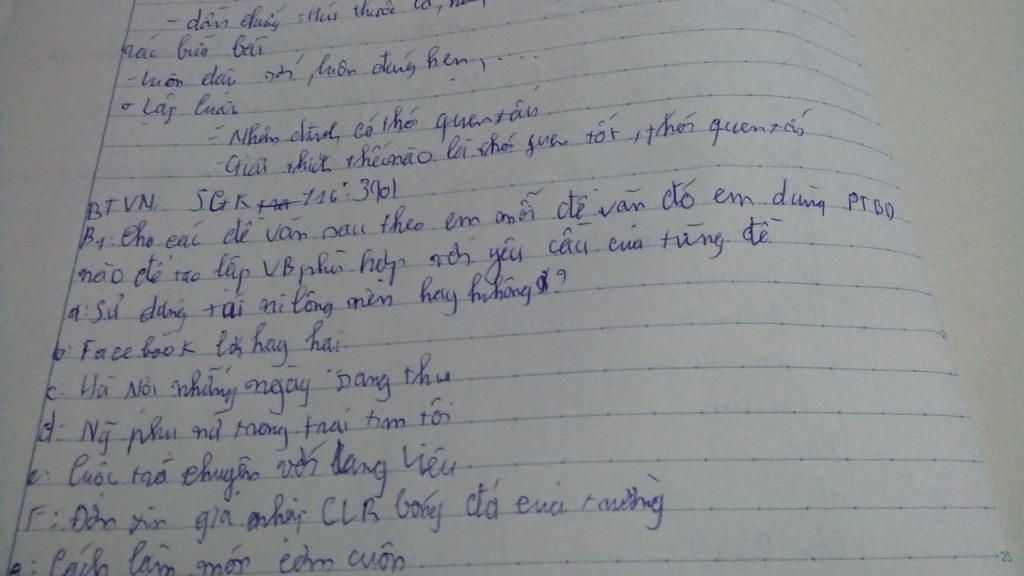 - dẫn chứng : thức thuở cờ,
rác bừa bãi
- luôn dậy sớ, luôn đúng hẹn, ...
o Lập luận
- Nhân định, có thói quen xấu
- Giải thích thế nào là thói quen tốt, thói quen xấu
BTVN: SGK 116: 3,01
B1: Cho các đề văn sau theo em mỗi đề văn đó em dùng PTBĐ
nào để tạo lập VB phù hợp với yêu cầu của từng đề
a: Sử dụng túi ni lông nên hay không?
b: Facebook lợi hay hại
c: Hà Nội những ngày sang thu
d: Ng phụ nữ trong trái tim tôi
e: Cuộc trò chuyện với Lang Liêu
f: Đơn xin gia nhập CLB bóng đá của trường
g: Cách làm món cơm cuộn